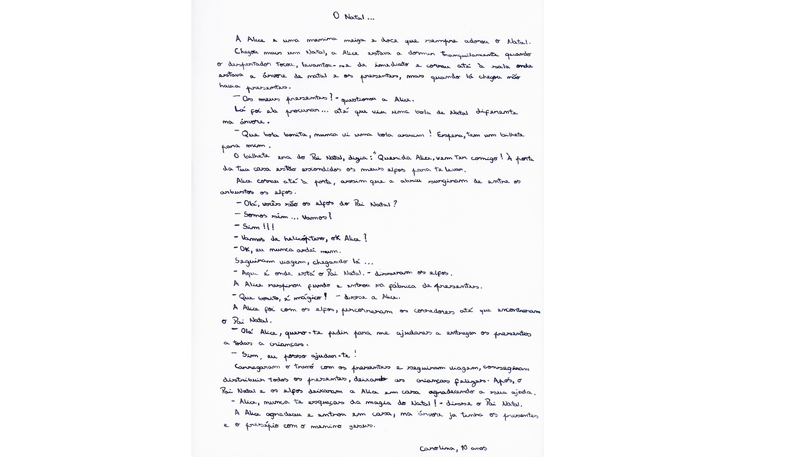 O Natal...
A Alice é uma menina meiga e doce que sempre adorou o Natal.
Chegou mais um Natal, a Alice estava a dormir tranquilamente quando
o despertador tocou, levantou-se de imediato e correu até à sala onde
estava a árvore de natal e os presentes, mas quando lá chegou não
havia presentes.
— Os meus presentes? - questionou a Alice.
Lá foi ela procurar... até que viu uma bola de Natal diferente
na árvore.
— Que bola bonita, nunca vi uma bola assim! Espera, tem um bilhete
para mim.
O bilhete era do Pai Natal, dizia: "Querida Alice, vem ter comigo! À porta
da tua casa estão escondidos os meus elfos para te levar.
Alice correu até à porta, assim que a abriu surgiram de entre os
arbustos os elfos.
- Olá, vocês são os elfos do Pai Natal?
- Somos sim... Vamos?
- Sim!!!
- Vamos de helicóptero, ok Alice?
- OK, eu nunca andei num.
Seguiram viagem, chegando lá...
- Aqui é onde está o Pai Natal. - disseram os elfos.
A Alice respirou fundo e entrou na fábrica de presentes.
- Que bonito, é mágico! - disse a Alice.
A Alice foi com os elfos, percorreram os corredores até que encontraram
o Pai Natal.
— Olá Alice, quero-te pedir para me ajudares a entregar os presentes
a todas a crianças.
- Sim, eu posso ajudar-te!
Carregaram o trenó com os presentes e seguiram viagem, conseguiram
distribuir todos os presentes, deixando as crianças felizes. Após, o
Pai Natal e os elfos deixaram a Alice em casa agradecendo a sua ajuda.
- Alice, nunca te esqueças da magia do Natal! - disse o Pai Natal.
A Alice agradeceu e entrou em casa, na árvore ja tinha os presentes
e o presépio com o menino jesus.
Carolina, 10 anos